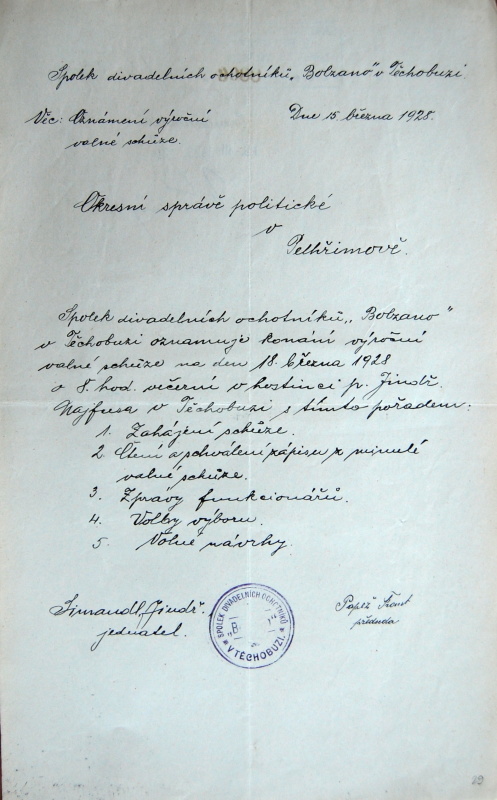 Spolek divadelních ochotníků „Bolzano" v Těchobuzi.
Věc: Oznámení výroční
valné schůze.
Dne 15. března 1928.
Okresní správě politické
v
Pelhřimově.
Spolek divadelních ochotníků „Bolzano"
v Těchobuzi oznamuje konání výroční
valné schůze na den 18. března 1928
o 8. hod. večerní v hostinci p. Jindř.
Najfusa v Těchobuzi s tímto pořadem:
1. Zahájení schůze.
2. Čtení a schválení zápisu z minulé
valné schůze.
3. Zprávy funkcionářů.
4. Volby výboru.
5. Volné návrhy.
Simandl Jindř.
jednatel.
SPOLEK DIVADELNÍCH OCHOTNÍKŮ
V TĚCHOBUZI.
Papež Frant
předseda
29